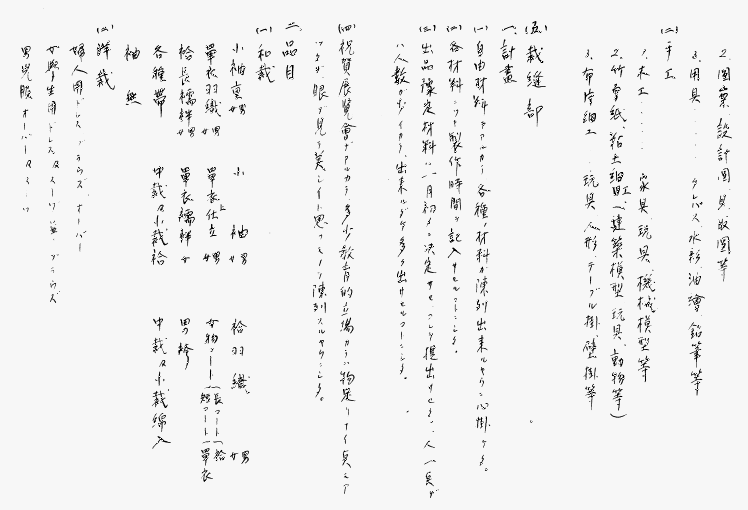 2. 図案、設計図、見取図等
3. 用具......クレパス、水彩、油絵、鉛筆等
(二) 手工
1. 木工......家具、玩具、機械模型等
2. 竹、厚紙、粘土細工(建築模型、玩具、動物等)
3. 布片細工 玩具、人形、テーブル掛、壁掛等
(五) 裁縫部
一、計畫
(一) 自由材料デアルカラ各種ノ材料ガ陳列出来ルヤウ心掛ケル。
(二) 各材料ニツキ製作時間ヲ記入サセルコト
(三) 出品豫定材料ハ一月初メ決定サセ
ハ人数ガ 出来ルダケ多ク出サセルコト
(四) 祝賀展覧会デアルカラ多少教育的立場カラハ物足リナイ点モア
眼デ見テ美シイト思フ 陳列スルヤウニスル。
二、品目
(一) 和裁
小袖裏 男女 小袖 男女 袷羽織 男女
單衣羽織 男女 單衣仕立 男女 女物コート(長コート 短コート)(袷 單衣)
袷長襦袢 男女 單衣襦袢 女 男袴
各種帯 中裁及小裁袷 中裁及小裁綿入
袖無
(二) 洋裁
婦人用ドレス、ブラウス、オーバー
女學生用ドレス及スーツ、ブラウス
男児服 オーバー及スーツ